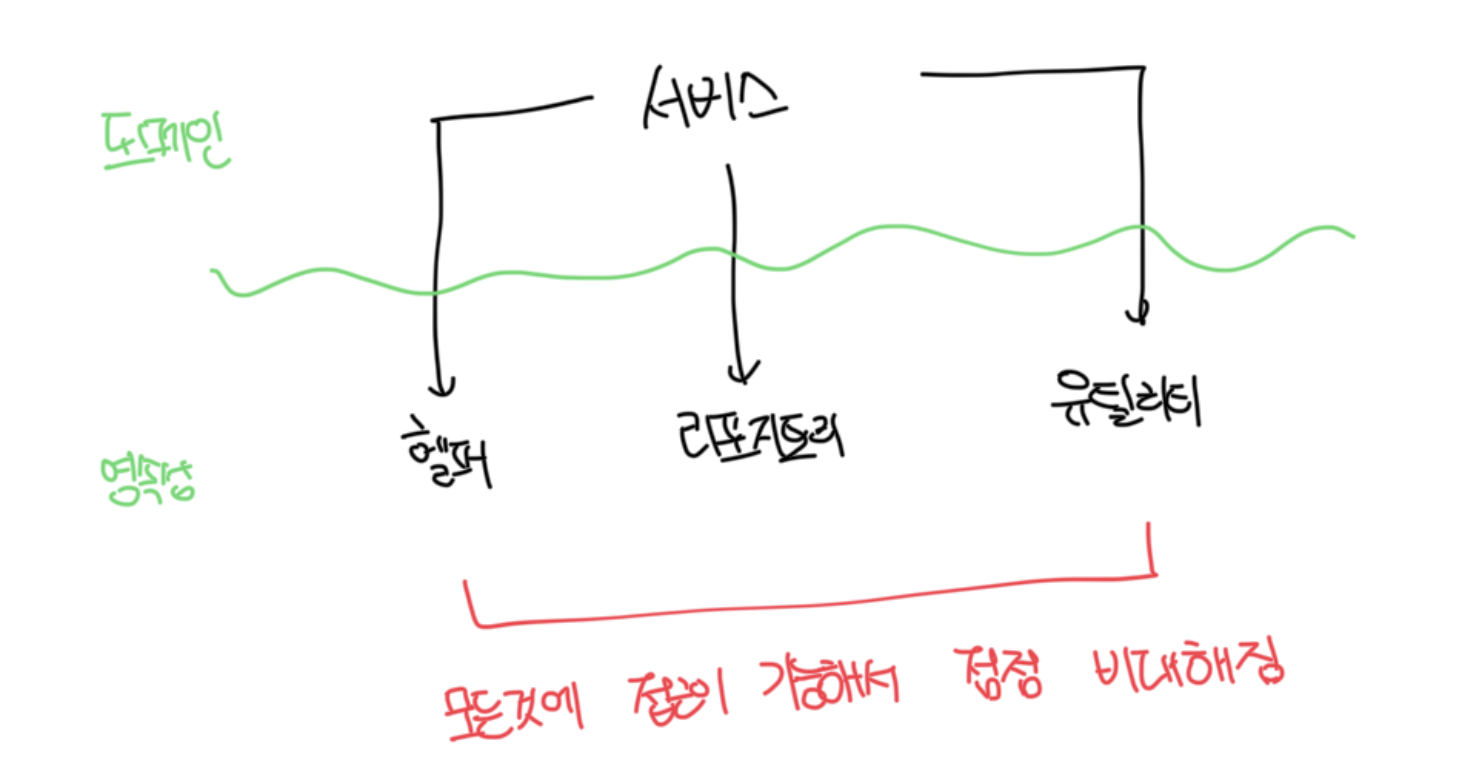 서비스
도메인
헬퍼
리포지토리
유틸리티
영속성
모든것에 접근이 가능해서 점점 비대해짐